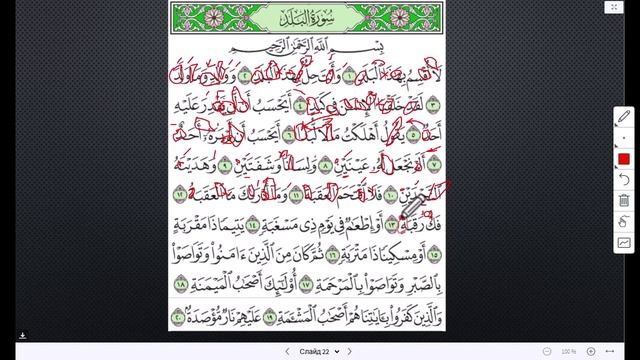 سُورَةُ البَلَدِ
بِسْمِ اللَّهِ الرَّحْمَٰنِ الرَّحِيمِ
لَا أُقْسِمُ بِهَٰذَا الْبَلَدِ ١ وَأَنتَ حِلٌّ بِهَٰذَا الْبَلَدِ ٢ وَوَالِدٍ وَمَا وَلَدَ
٣ لَقَدْ خَلَقْنَا الْإِنسَٰنَ فِي كَبَدٍ ٤ أَيَحْسَبُ أَن لَّن يَقْدِرَ عَلَيْهِ
أَحَدٌ ٥ يَقُولُ أَهْلَكْتُ مَالًا لُّبَدًا ٦ أَيَحْسَبُ أَن لَّمْ يَرَهُۥ أَحَدٌ
٧ أَلَمْ نَجْعَل لَّهُۥ عَيْنَيْنِ ٨ وَلِسَانًا وَشَفَتَيْنِ ٩ وَهَدَيْنَٰهُ
النَّجْدَيْنِ ١٠ فَلَا اقْتَحَمَ الْعَقَبَةَ ١١ وَمَا أَدْرَىٰكَ مَا الْعَقَبَةُ ١٢
فَكُّ رَقَبَةٍ ١٣ أَوْ إِطْعَٰمٌ فِي يَوْمٍ ذِي مَسْغَبَةٍ ١٤ يَتِيمًا ذَا مَقْرَبَةٍ
١٥ أَوْ مِسْكِينًا ذَا مَتْرَبَةٍ ١٦ ثُمَّ كَانَ مِنَ الَّذِينَ ءَامَنُوا وَتَوَاصَوْا
بِالصَّبْرِ وَتَوَاصَوْا بِالْمَرْحَمَةِ ١٧ أُولَٰئِكَ أَصْحَٰبُ الْمَيْمَنَةِ ١٨
وَالَّذِينَ كَفَرُوا بِـَٔايَٰتِنَا هُمْ أَصْحَٰبُ الْمَشْـَٔمَةِ ١٩ عَلَيْهِمْ نَارٌ مُّؤْصَدَةٌ ٢٠
Слайд 22
100 %